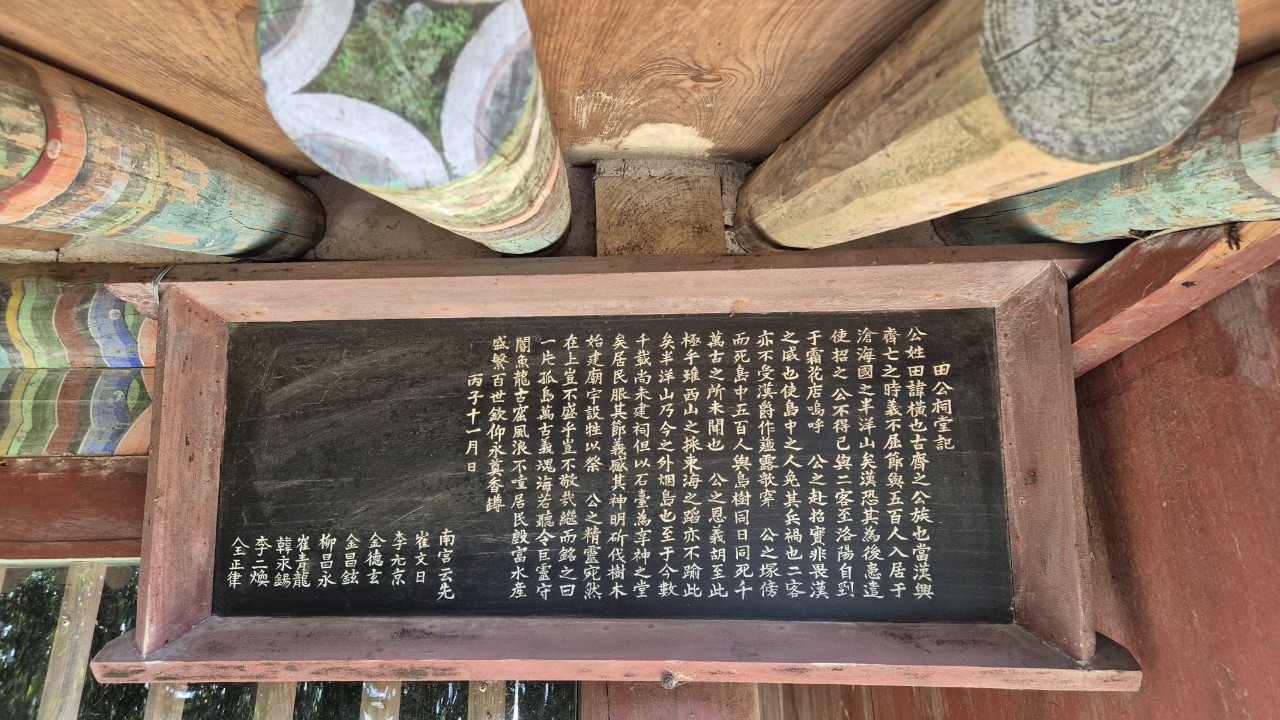 田公祠堂記
公姓田諱橫也古齊之公族也當漢興
齊亡之時義不屈節與五百人入居于
滄海國之半洋山矣漢恐其為後患遣
使招之 公不得已與二客至洛陽自到
于霜花店嗚呼 公之赴招實非畏漢
之威也使島中之人免其兵禍也二客
亦不受漢爵作薤露歌穿 公之塚傍
而死島中五百人與島樹同日同死千
萬古之所未聞也 公之恩義胡至此
極乎雖西山之採東海之蹈亦不踰此
矣半洋山乃今之外烟島也至于今數
千載尚未建祠但以石臺為享神之堂
矣居民服其節義感其神明斫伐樹木
始建廟宇設牲以祭 公之精靈宛然
在上豈不盛乎豈不敬哉繼而銘之曰
一片孤島萬古義魂海若聽令巨靈守
閽魚龍古窟風浪不喧居民殷富水産
盛繁百世欽仰永奠香罇
丙子十一月 日
南宮云先
崔文日
李元京
金德玄
金昌鉉
柳昌永
崔青龍
韓永錫
李二煥
仝正律